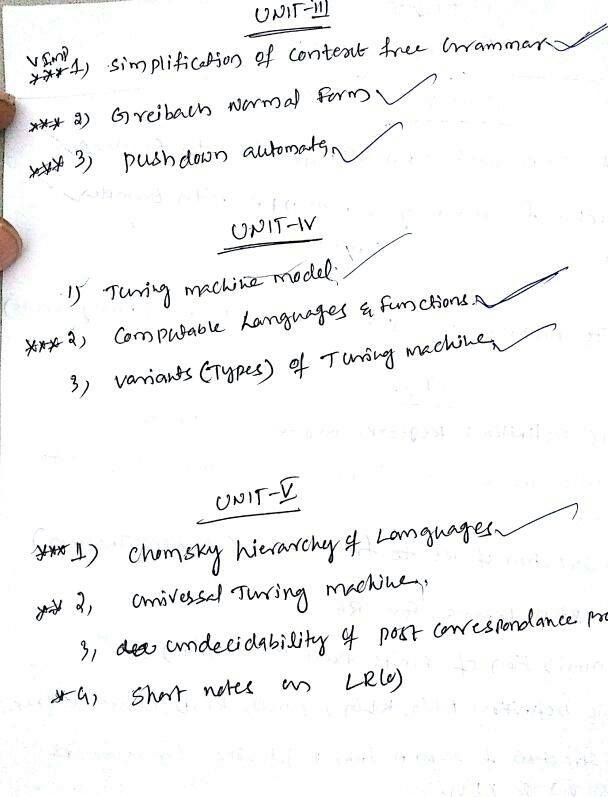 UNIT-III
V Imp
*** 1) simplification of context free Grammar
*** 2) Greibach Normal Form
*** 3) pushdown automata
UNIT-IV
1) Turing machine model.
*** 2) Computable Languages & functions.
3) variants (Types) of Turing machine
UNIT-V
*** 1) chomsky hierarchy of Languages
** 2, univessal Turing machine.
3, undecidability of post correspondance pro
* 4, short notes on LR(0)